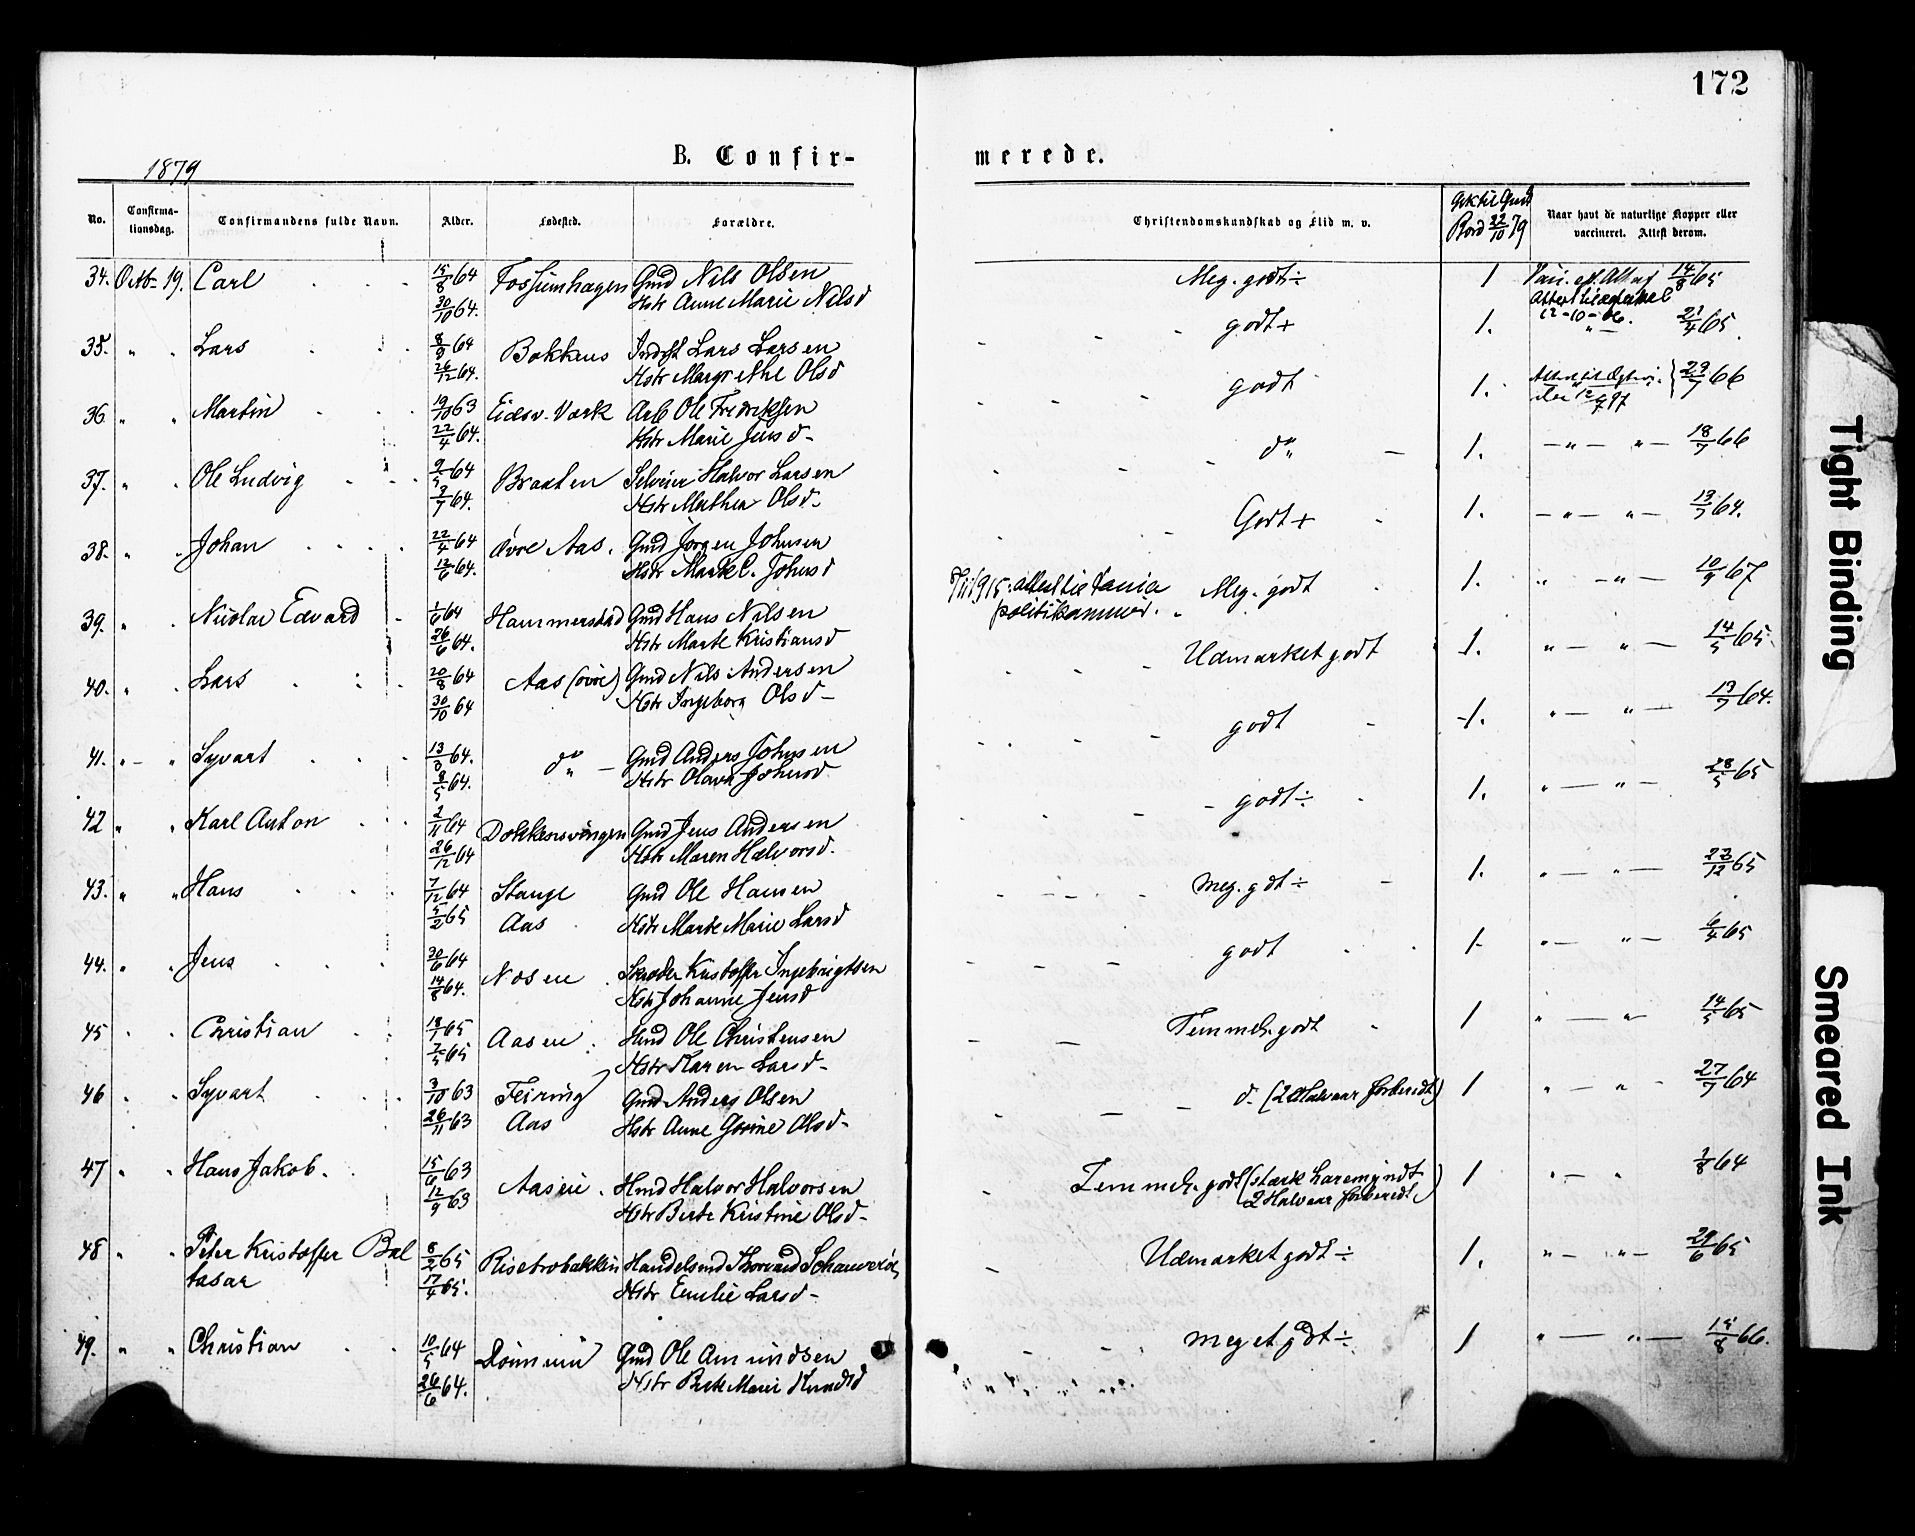 172
1879
B. Confir- merede.
No. Confirma-tionsdag. Confirmandens fulde Navn. Alder. Fødested. Forældre. Christendomskundskab og Flid m. v. Gik til Guds Bord 22/10 79 Naar havt de naturlige Kopper eller vaccineret. Attest derom.
34. Octb 19. Carl 15/8 64 Fossumhagen Gmd Nils Olsen Meg. godt ÷ 1 14/8 65
30/10 64. Hstr Anne Marie Nilsd
12-10-06.
35. " " Lars 8/9 64 Bakkens Lars Larsen godt + 1. " 21/4 65
26/12 64. Hstr Margrethe Olsd
36 " " Martin 19/10 63 Eidsv. Værk Arb Ole Fredriksen godt 1. 23/7 66
22/4 64. Hstr Marie Jensd-
37. " " Ole Ludvig 9/5 64 Braaten Selveier Halvor Larsen do 1. — " — " — 18/7 66
3/7 64. Hstr Mathea Olsd-
38. " " Johan 22/4 64 Øvre Aas. Gmd Jörgen Johnsen Godt + 1. — " — " — 13/7 64.
12/6 64. Hstr Johnsd
39. " " Nicolai Edvard 1/6 64 Hammerstad Gmd Hans Nilsen Meg. godt 1. " — " — 10/9 67
26/6 64. Hstr Marte Kristiansd
politikammer.
40. " " Lars 20/8 64 Aas (øvre) Gmd Nils Andersen Udmærket godt 1. " — " — 14/5 65.
30/10 64 Hstr Ingeborg Olsd-
41. " — " Syvart 13/3 64. do — Gmd Anders Johnsen godt 1. " — " — 13/7 64.
8/5 64. Hstr Olava Johnsd
42 " " Karl Anton 2/11 64 Dokkensvingen Gmd Jens Andersen godt ÷ 1. " — " — 28/5 65
26/12 64 Hstr Maren Halvorsd.
43. " " Hans 7/12 64 Stange Gmd Ole Hansen Meg. gdt ÷ 1. " — " — 23/12 65
5/2 65 Aas Hstr Marte Marie Larsd
44. " " Jens 30/6 64 Nosen Skræder Kristoffer Ingebrigtsen godt 1- " — " — 6/4 65
14/8 64. Hstr Johanne Jensd
45 " " Christian 18/1 65 Aasen. Hmd Ole Christensen Temmel. godt 1 " — " 14/5 65
7/5 65 Hstr Karen Larsd-
46 " " Syvart 3/10 63 Feiring Gmd Anders Olsen d. (2 Halvaar forberedt) 1 " — " - 27/7 64
26/11 63 Aas Hstr Anne Gorine Olsd-
47 " " Hans Jakob. 15/6 63 Aasen. Hmd Halvor Halvorsen Temmel. godt (stærk haremyndt 1 " — " 7/8 64
12/9 63 Hstr Berte Kristine Olsd- 2 Halvaar forberedt)
48 " " Peter Kristoffer Bal 8/2 65 Risebrobakken Handelsmd Udmærket godt ÷ 1. " — " — 29/6 65
tasar 17/4 65. Hstr Emilie Larsd-
49. " " Christian 10/5 64 Gmd Ole Amundsen meget gdt ÷ 1 " — " — 15/8 66.
26/6 64. Hstr Berte Marie Knudsd
Tight Binding
Smeared Ink